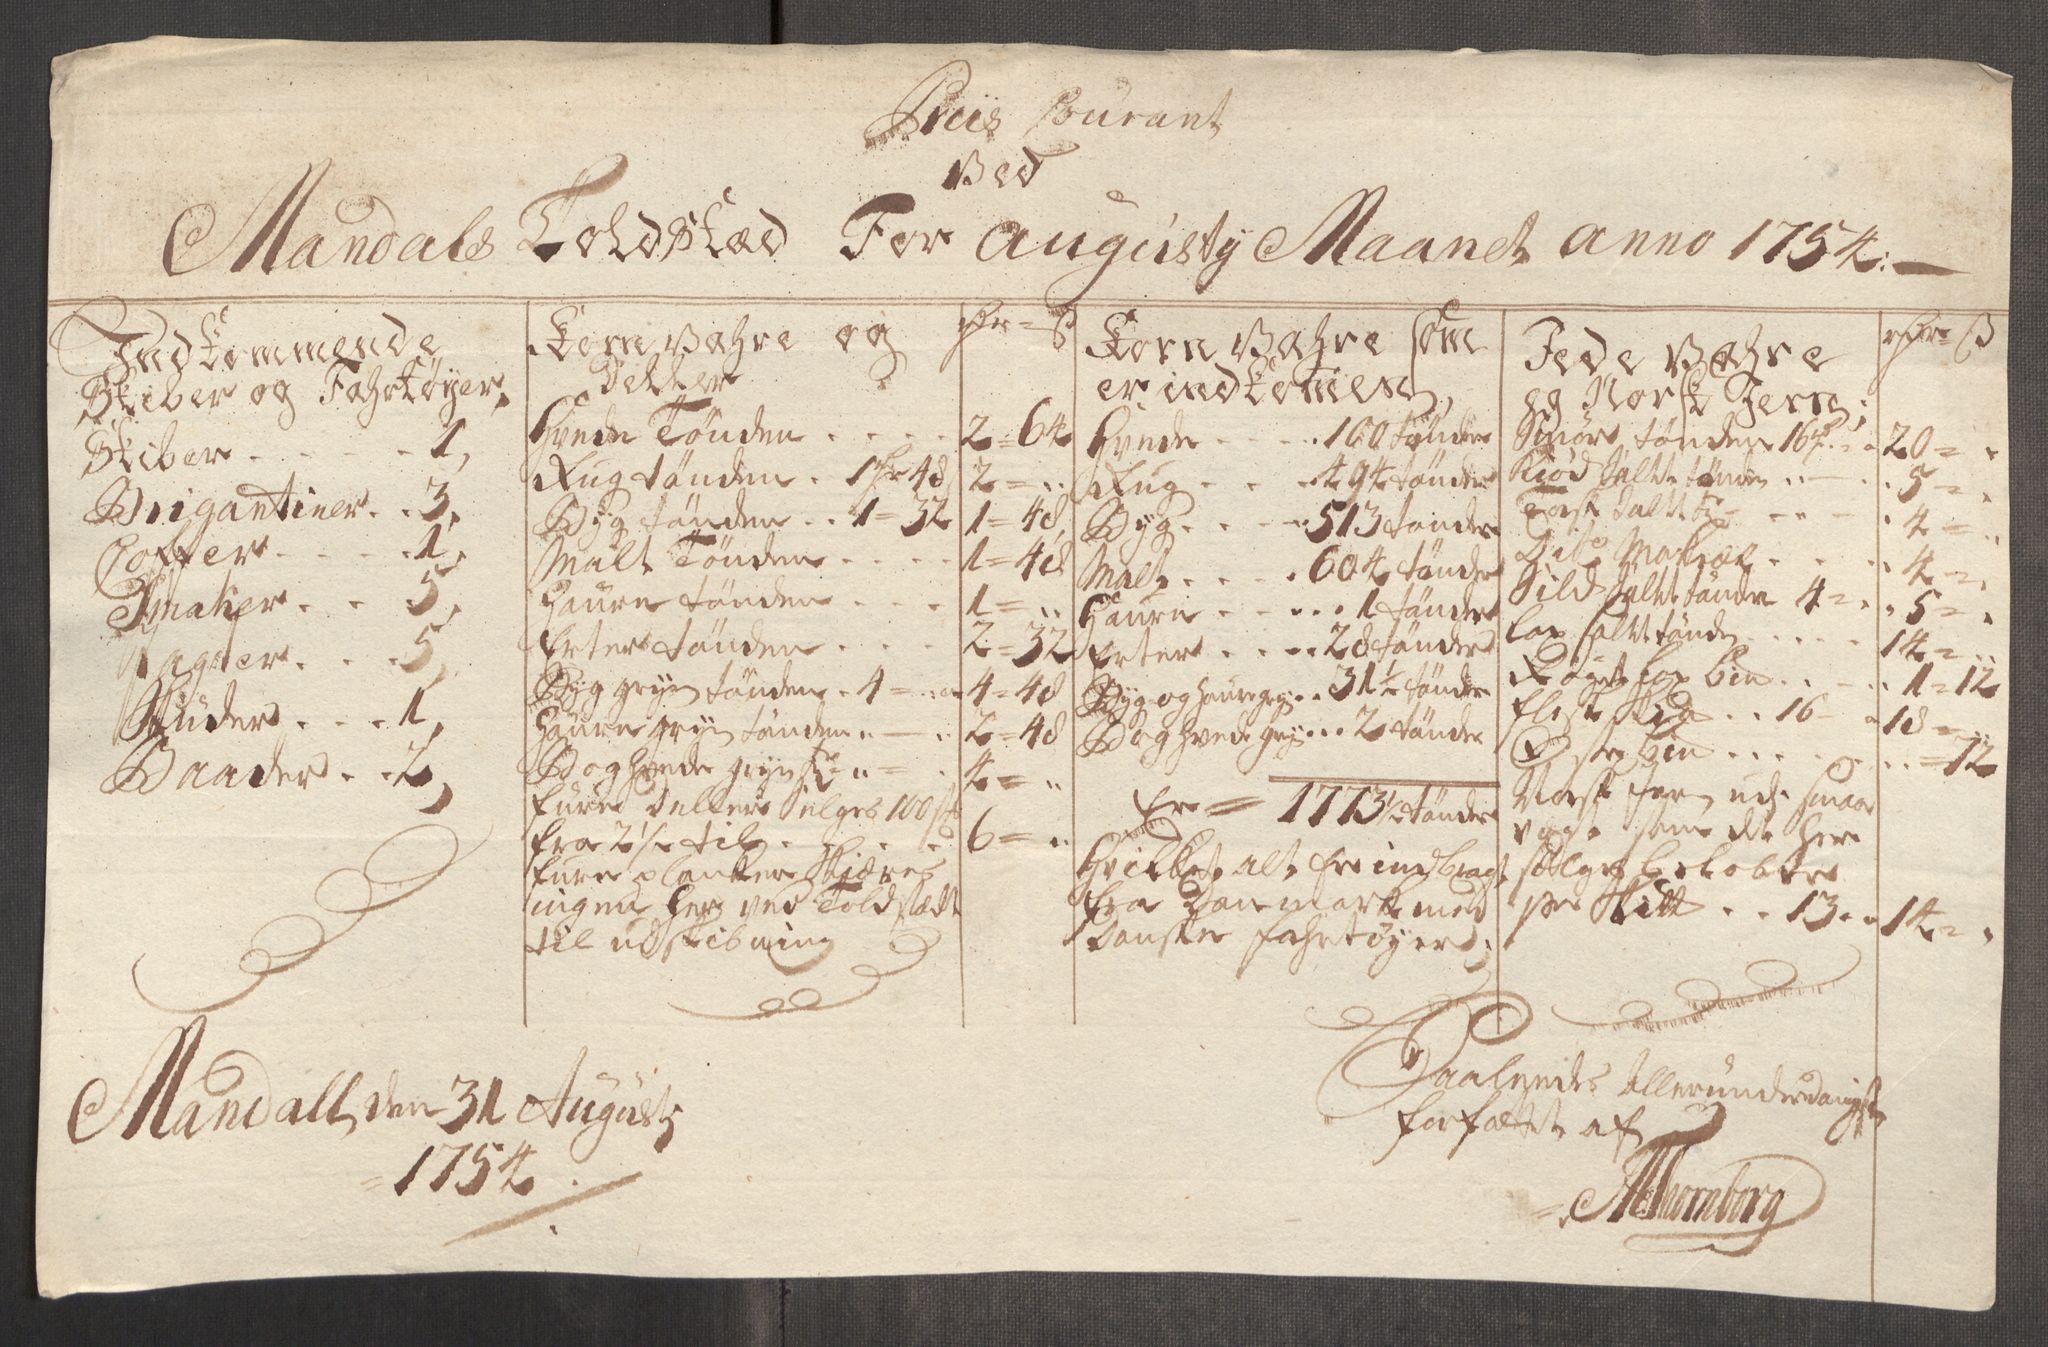 Priis Courant
Ved
Mandals Toldstæd For Augusty Maanet anno 1754:
Indkommende
Skiber og Fahrtøyer,
Skiber 1,
Brigantiner 3,
Coffer 1,
Smaker 5,
Jagter 5,
Skuder 1,
Baader 2,
Korn Vahre og
Deller
Rdr = ß
Hvede Tönden 2 = 64
Rug tönden 1 Rdr 48 2 = ..
Byg tönden 1 = 32 1 = 48
Malt Tönden 1 = 48
Haure tönden 1 = ..
Erter tönden 2 = 32
Byg gryn tönden 4 = .. a 4 = 48
Haure gryn tönden 2 = 48
Boghvede gryn 4 = ..
Furu Deller Selges 100 st
fra 2 1/2 til 6 = ..
Furu planker Skiæres
ingen her ved Toldstædt
til udskibning
Korn Vahre som
er indkomen,
Hvede 160 tönder
Rug 494 tönder
Byg 513 tönder
Malt 604 tönder
Haure 1 tönder
Erter 28 tönder
Byg og haure gryn 31 1/2 tönder
Boghvede gryn 2 tönder
Er = 1773 1/2 tönder
Hvilket alt er indbragt
fra Danmark med
Danske fahrtøyer;
Fede Vahre
og Norsk Jern:
Rdr = ß
Smör tönden 16 20 =
Kiöd Saltt tönden 5 =
Torsk Saltt 4 =
Dito Makræl 4 =
Sild Saltt tönden 4 = 5 =
Lax Saltt tönde 14 =
Röget Lax 1 = 12
Flesk 16 18 =
Oster = 12
Norsk Jern udi smaa
som dt her
sælges
per Skitt 13 14 =
Mandall den 31 Augusty
1754
Paa legendes Allerunderdanigst
forfattet af
Thornborg